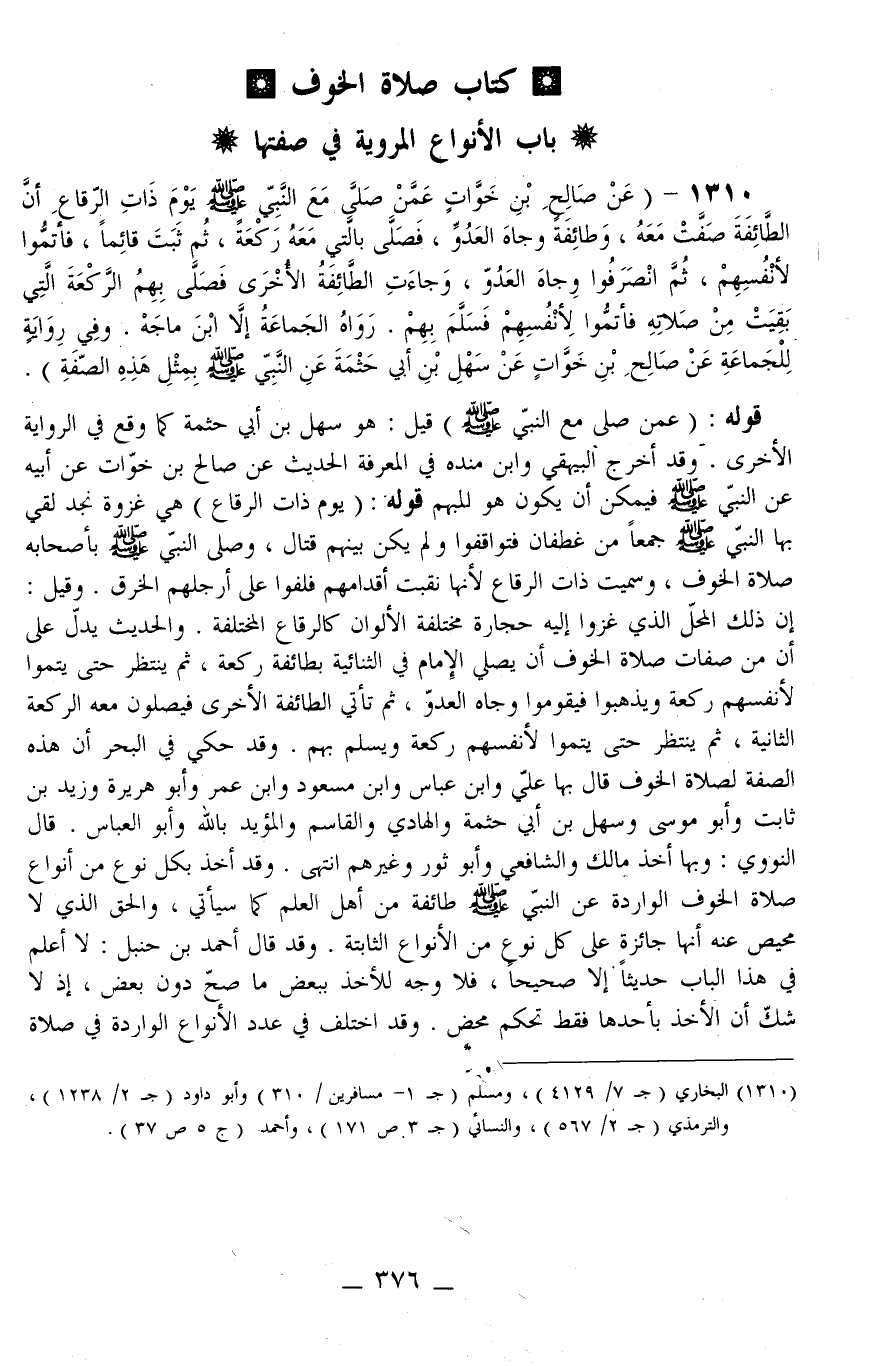 كتاب صلاة الخوف
باب الأنواع المروية في صفتها
١٣١٠ – ( عَنْ صَالِحِ بْنِ خَوَّاتٍ عَمَّنْ صَلَّى مَعَ النَّبِيّ ﷺ يَوْمَ ذَاتِ الرّقاعِ أنَّ
الطَّائِفَةَ صَفَّتْ مَعَهُ ، وَطائِفَةً وجاهَ العَدُوِّ ، فَصَلَّى بالَّتي مَعَهُ رَكْعَةً ، ثُم ثَبَتَ قائِماً ، فأتمُّوا
لأنْفُسِهِمْ ، ثُمَّ انْصَرَفُوا وِجاهَ العَدُوّ ، وَجاءَتِ الطَّائفَةُ الأُخْرَى فَصَلَّى بِهِمُ الرَّكْعَةَ الَّتِي
بَقِيَتْ مِنْ صَلاتِهِ فأتمُّوا لِأنْفُسِهِمْ فَسَلَّمَ بِهِمْ . رَوَاهُ الجَماعَةُ إلَّا ابْنَ ماجَهْ . وفِي رِوَايَةٍ
لِلْجَماعَةِ عَنْ صَالِحِ بْنِ خَوَّاتٍ عَنْ سَهْلِ بْنِ أبي حَثْمَةَ عَنِ النَّبِيّ ﷺ بِمِثْلِ هَذِهِ الصّفَةِ ) .
قوله : ( عمن صلى مع النبيّ ﷺ ) قيل : هو سهل بن أبي حثمة كما وقع في الرواية
الأخرى . وقد أخرج البيهقي وابن منده في المعرفة الحديث عن صالح بن خوّات عن أبيه
عن النبيّ ﷺ فيمكن أن يكون هو للمبهم قوله : ( يوم ذات الرقاع ) هي غزوة نجد لقي
بها النبيّ ﷺ جمعاً من غطفان فتواقفوا ولم يكن بينهم قتال ، وصلى النبيّ ﷺ بأصحابه
صلاة الخوف ، وسميت ذات الرقاع لأنها نقبت أقدامهم فلفوا على أرجلهم الخرق . وقيل :
إن ذلك المحلّ الذي غزوا إليه حجارة مختلفة الألوان كالرقاع المختلفة . والحديث يدلّ على
أن من صفات صلاة الخوف أن يصلي الإمام في الثنائية بطائفة ركعة ، ثم ينتظر حتى يتموا
لأنفسهم ركعة ويذهبوا فيقوموا وجاه العدوّ ، ثم تأتي الطائفة الأخرى فيصلون معه الركعة
الثانية ، ثم ينتظر حتى يتموا لأنفسهم ركعة ويسلم بهم . وقد حكي في البحر أن هذه
الصفة لصلاة الخوف قال بها عليّ وابن عباس وابن مسعود وابن عمر وأبو هريرة وزيد بن
ثابت وأبو موسى وسهل بن أبي حثمة والهادي والقاسم والمؤيد بالله وأبو العباس . قال
النووي : وبها أخذ مالك والشافعي وأبو ثور وغيرهم انتهى . وقد أخذ بكل نوع من أنواع
صلاة الخوف الواردة عن النبيّ ﷺ طائفة من أهل العلم كما سيأتي ، والحق الذي لا
محيص عنه أنها جائزة على كل نوع من الأنواع الثابتة . وقد قال أحمد بن حنبل : لا أعلم
في هذا الباب حديثاً إلا صحيحاً ، فلا وجه للأخذ ببعض ما صحّ دون بعض ، إذ لا
شكّ أن الأخذ بأحدها فقط تحكم محض . وقد اختلف في عدد الأنواع الواردة في صلاة
(١٣١٠) البخاري ( جـ ٧/ ٤١٢٩ ) ، ومسلم ( جـ ١– مسافرين / ٣١٠ ) وأبو داود ( جـ ٢/ ١٢٣٨ ) ،
والترمذي ( جـ ٢/ ٥٦٧ ) ، والنسائي ( جـ ٣ ص ١٧١ ) ، وأحمد ( ج ٥ ص ٣٧ ) .
— ٣٧٦ —